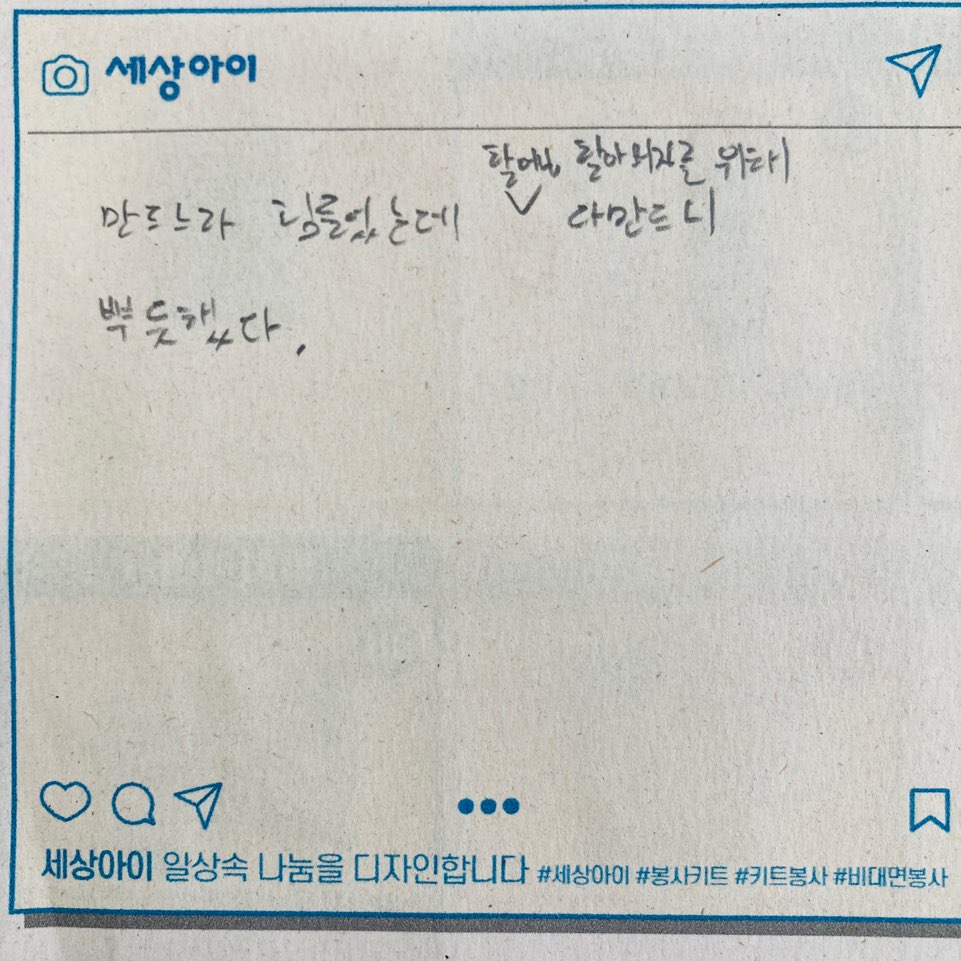 세상아이
위해
만드느라 힘들었는데 다만드니
뿌듯했다.
세상아이 일상속 나눔을 디자인합니다 #세상아이 #봉사키트 #키트봉사 #비대면봉사